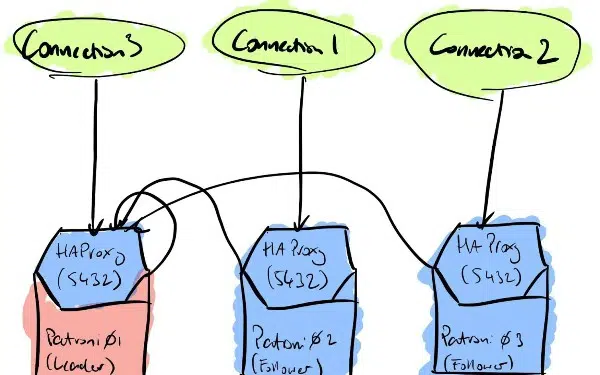 Connection 3
Connection 1
Connection 2
HAProxy
(5432)
HAProxy
(5432)
HAProxy
(5432)
Patroni 01
(Leader)
Patroni 02
(Follower)
Patroni 03
(Follower)